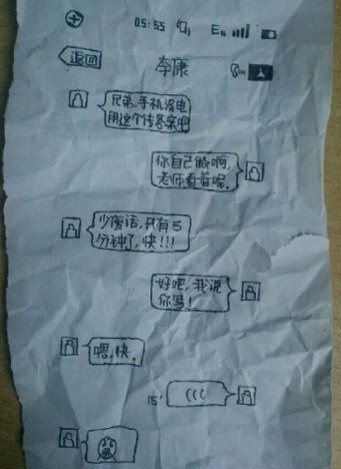 05:55
返回
李康
兄弟,手机没电
用这个传答案吧
你自己做啊,
老师看着呢.
少废话,只有5
分钟了,快!!!
好吧,我说
你写!
嗯,快.
15"